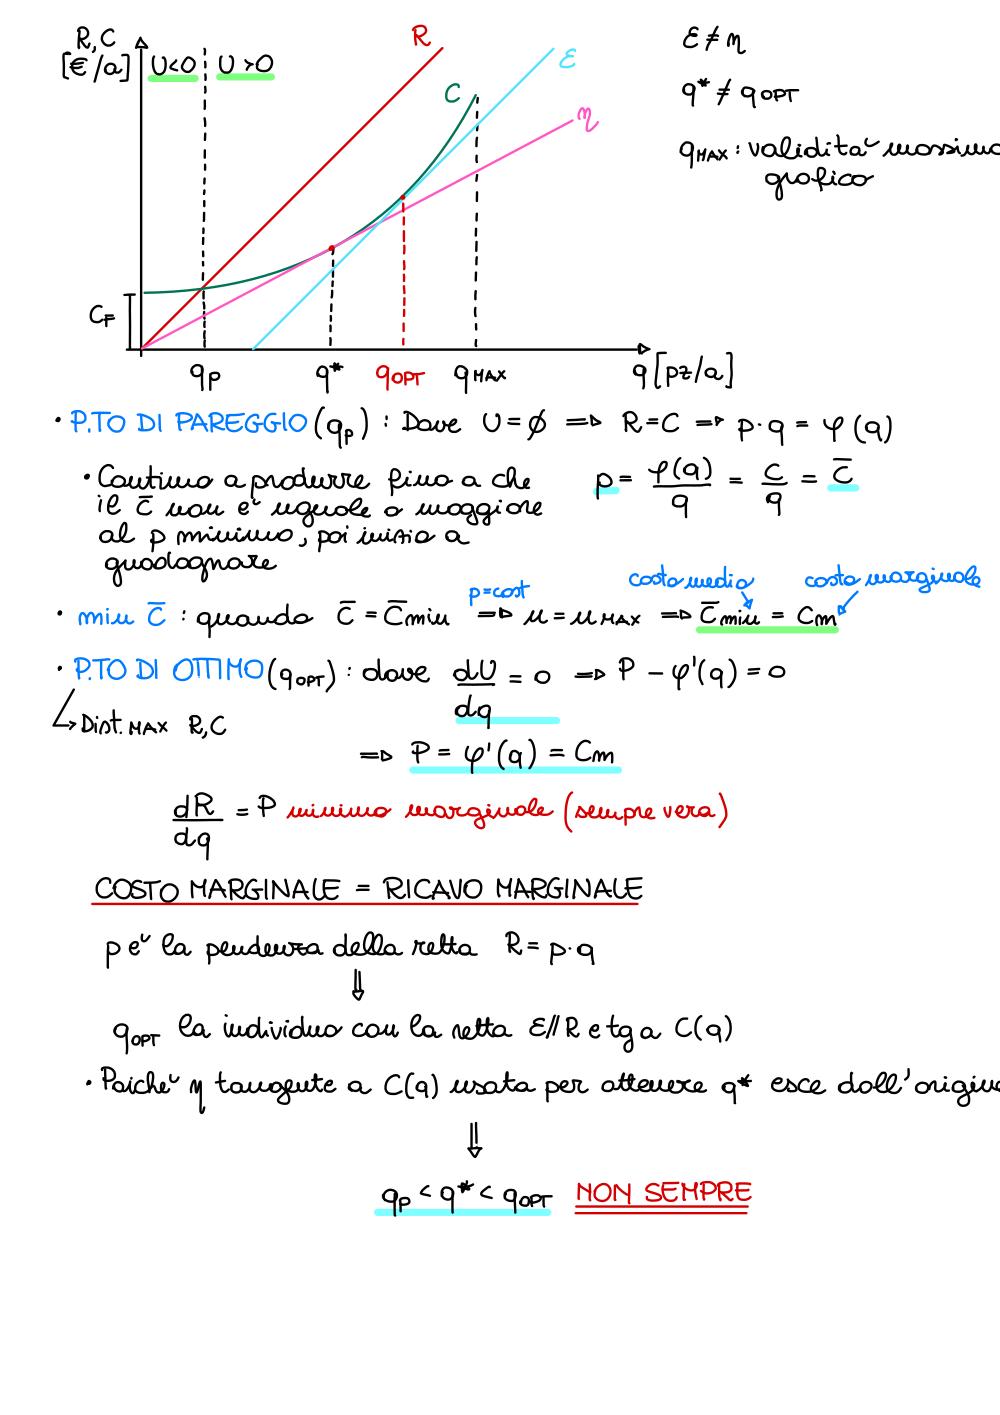 R, C
[€/a]
U<0 U>0
R
ε
C
η
C_F
q_P q* q_OPT q_MAX q [pz/a]
ε ≠ η
q* ≠ q_OPT
q_MAX : validità massima
grafico
• P.TO DI PAREGGIO (q_P) : Dove U = ∅ ⇒ R = C ⇒ p·q = φ(q)
• Continuo a produrre fino a che
il c̄ non è uguale o maggiore
al p minimo, poi inizio a
guadagnare
p = φ(q)/q = C/q = C̄
p=cost
costo medio costo marginale
• min C̄ : quando C̄ = C̄min ⇒ u = u_MAX ⇒ C̄min = Cm
• P.TO DI OTTIMO (q_OPT) : dove dU/dq = 0 ⇒ P − φ'(q) = 0
↳ Dist. MAX R,C
⇒ P = φ'(q) = Cm
dR/dq = P minimo marginale (sempre vera)
COSTO MARGINALE = RICAVO MARGINALE
p è la pendenza della retta R = p·q
⇓
q_OPT la individuo con la retta ε // R e tg a C(q)
• Poichè η tangente a C(q) usata per ottenere q* esce dall'origine
⇓
q_P < q* < q_OPT NON SEMPRE